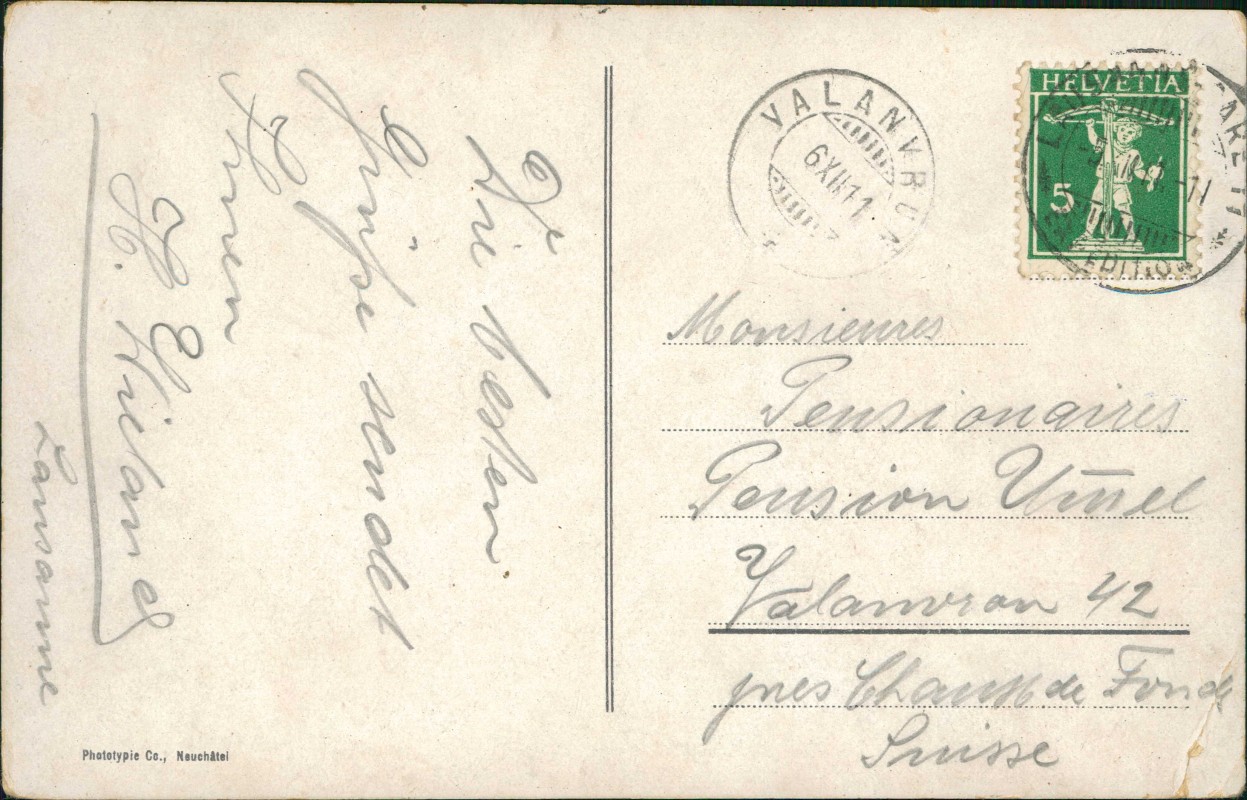 Die besten
Grüße sendet
Ihnen
H. Wieland
Lausanne
Phototypie Co., Neuchâtel
VALANVRON
6 XII 11
HELVETIA
5
Monsieures
Pensionaires
Pension
Valanvron 42
pres Chaux de Fonds
Suisse